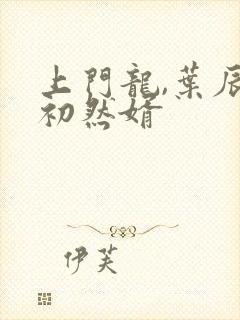 上門龍,葉辰
初然婿
伊芙